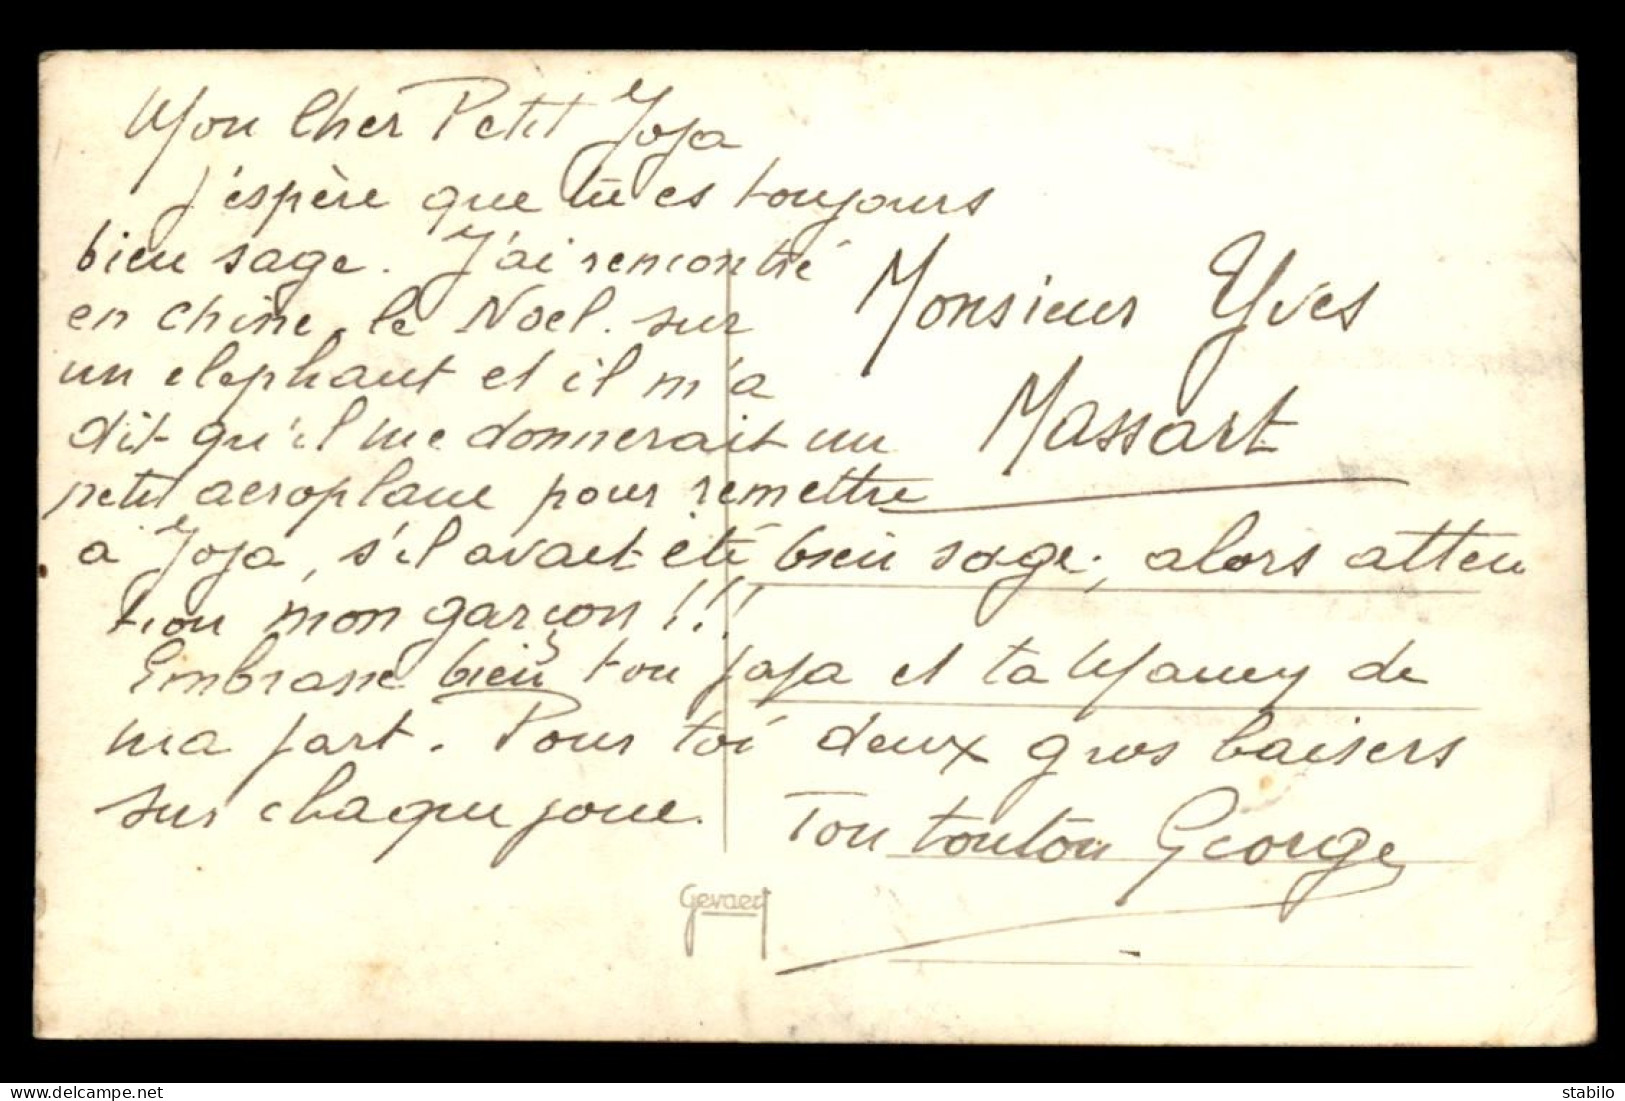 Mon Cher Petit Joja
J'espère que tu es toujours
bien sage. J'ai rencontré
en chine, le Noel. sur
un elephant et il m'a
dit qu'il me donnerait un
petit aeroplane pour remettre
a Joja, s'il avait été bien sage, alors atten
tion mon garçon !!!
Embrasse bien ton Jaja et ta Mamy de
ma part. Pour toi deux gros baisers
sur chaque joue.
Ton tonton George
Monsieur Yves
Massart
Gevaert
stabilo